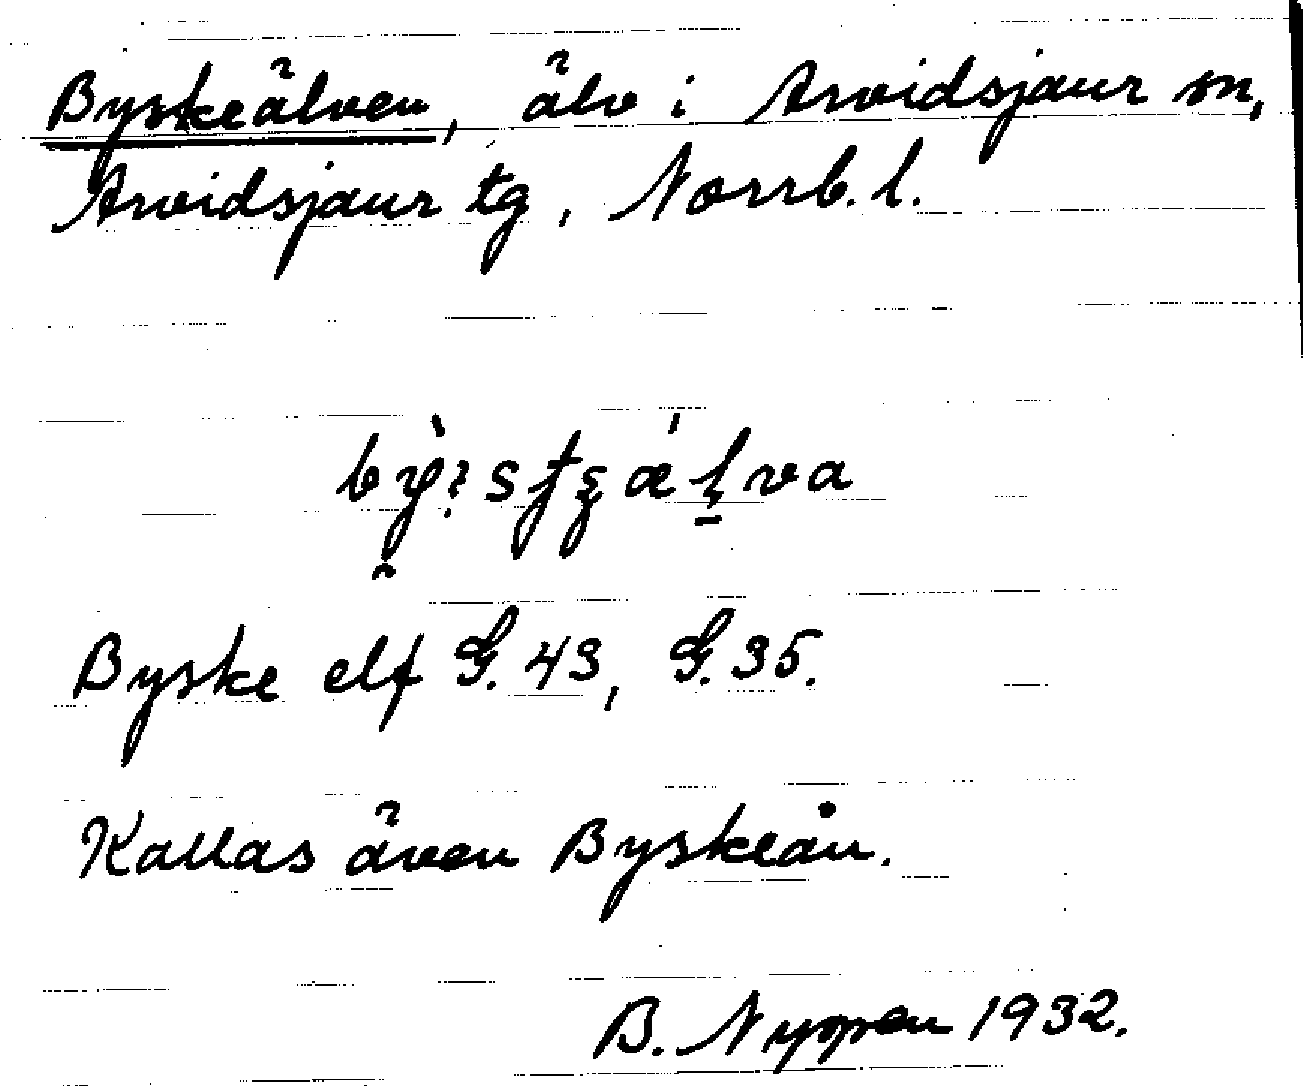 Byskeälven, älv i Arvidsjaur sn,
Arvidsjaur tg, Norrb. l.
Byske elf G. 43, G. 35.
Kallas även Byskeån.
B. Nyman 1932.